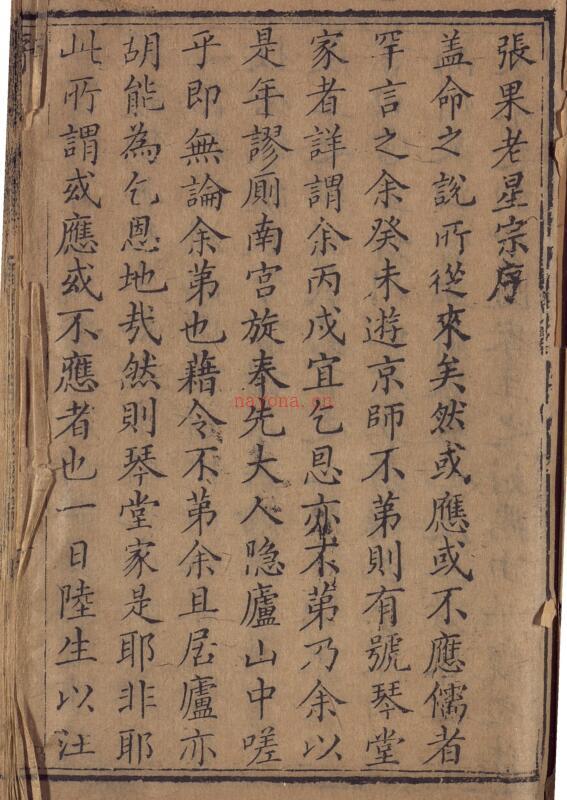 張果老星宗序
盖命之說所從來矣然或應或不應儒者
罕言之余癸未遊京師不第則有號琴堂
家者詳謂余丙戌宜乞恩亦不第乃余以
是年謬厠南宮旋奉先大人隐廬山中嗟
乎即無論余第也藉令不第余且居廬亦
胡能為乞恩地㢤然則琴堂家是耶非耶
此所謂或應或不應者也一日陸生以汪
nayona.cn